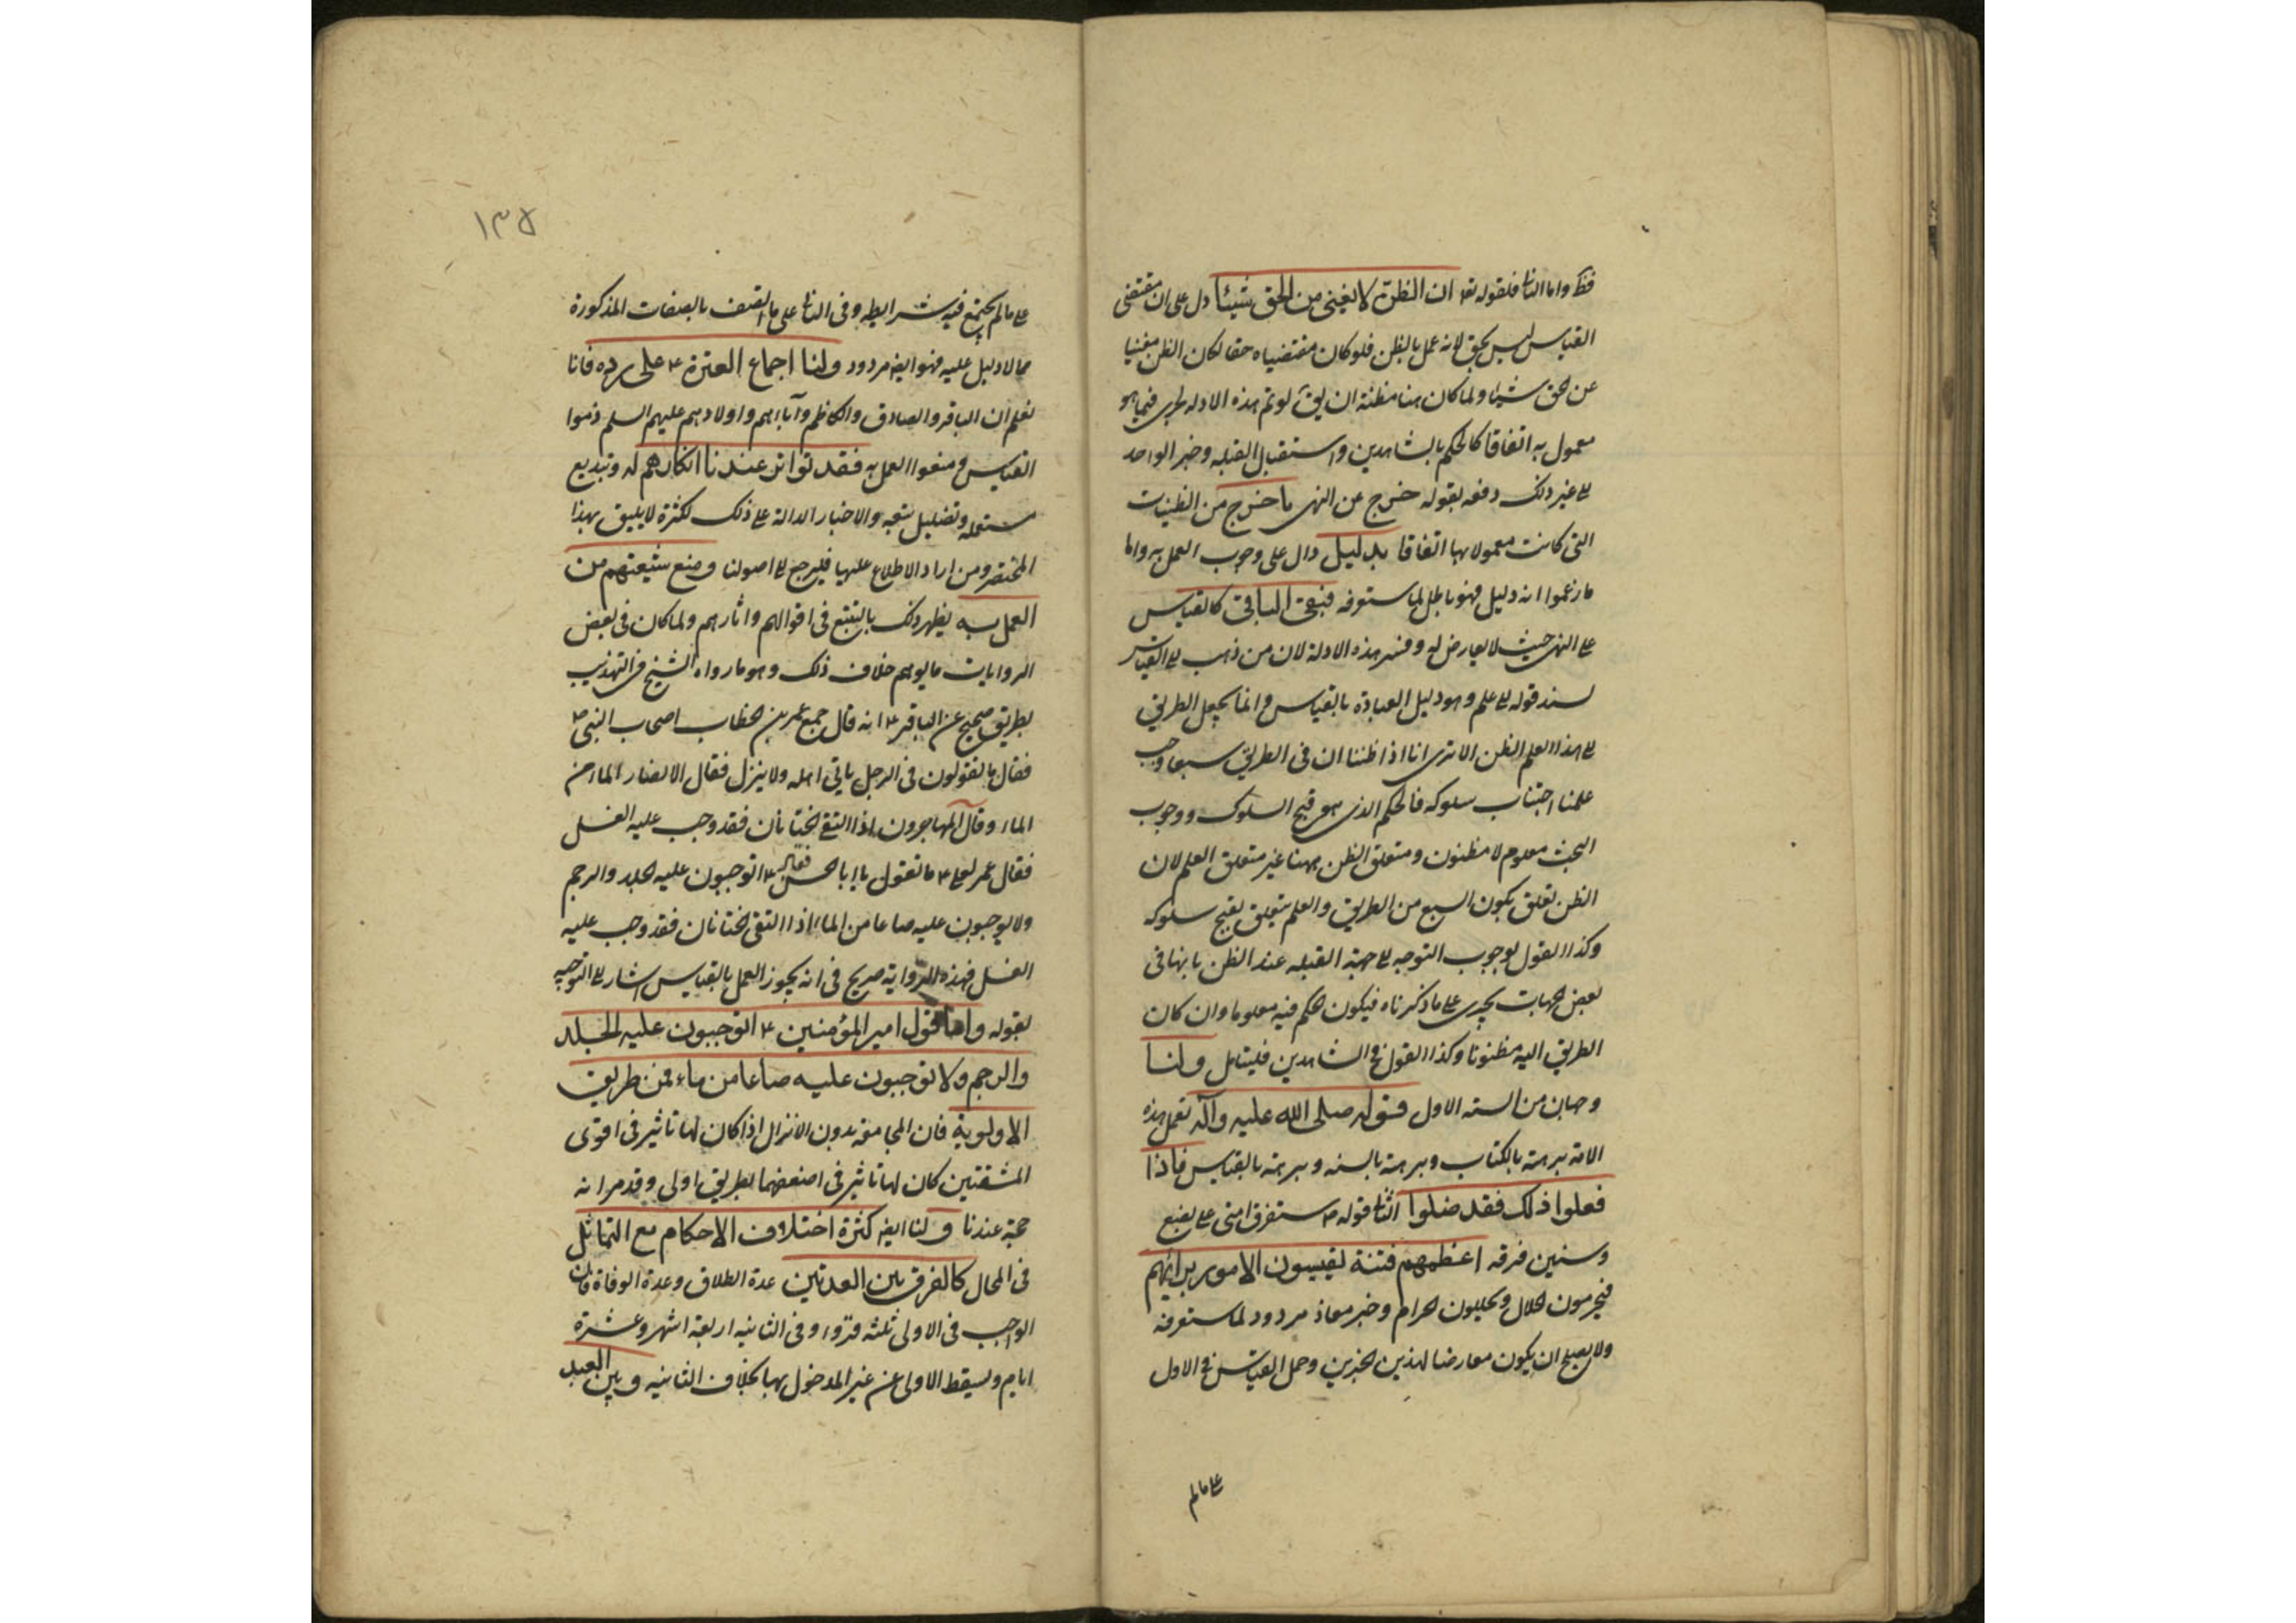 فظ واما الثا فلقوله تعا ان الظن لا يغنى من الحق شيئا دل على ان مقتضى
القياس ليس بحق لانه عمل بالظن فلو كان مقتضياه حقا لكان الظن مغنيا
عن الحق شيئا ولما كان هنا مظنة ان يق لو تم هذه الادلة لجرى فيما هو
معمول به اتفاقا كالحكم بالشاهدين واستقبال القبله وخبر الواحد
الى غير ذلك دفعه بقوله خرج عن النهى ما خرج من الظنيات
التى كانت معمولا بها اتفاقا بدليل دال على وجوب العمل به واما
ما زعموا انه دليل فهو باطل لما ستعرفه فبقى الباقى كالقياس
على النهى حيث لا يعارض له وفى هذه الادلة لان من ذهب الى القياس
يسند قوله الى علم وهو دليل العبادة بالقياس وانما يجعل الطريق
الى هذا العلم الظن الا ترى انا اذا ظننا ان فى الطريق سبعا وجب
علينا اجتناب سلوكه فالحكم الذى هو قبح السلوك ووجوب
البحث معلوم لا مظنون ومتعلق الظن ههنا غير متعلق العلم لان
الظن تعلق بكون السبع من الطريق والعلم يتعلق بقبح سلوكه
وكذا القول بوجوب التوجه الى جهة القبله عند الظن بانها فى
بعض الجهات يجرى على ما ذكرناه فيكون الحكم فيه معلوما وان كان
الطريق اليه مظنونا وكذا القول فى الشاهدين فليتامل ولنا
وجهان من السنه الاول قوله صلى الله عليه وآله تعمل هذه
الامة برهة بالكتاب وبرهة بالسنه وبرهة بالقياس فاذا
فعلوا ذلك فقد ضلوا الثا قوله ص ستفرق امتى على بضع
وسبعين فرقه اعظمهم فتنة يقيسون الامور برائهم
فيحرمون الحلال ويحللون الحرام وخبر معاذ مردود لما ستعرفه
ولا يصلح ان يكون معارضا لهذين الخبرين وحمل القياس فى الاول
على ما لم
١٣٥
على ما لم يجتمع فيه شرايطه وفى الثا على ما اتصف بالصفات المذكورة
مما لا دليل عليه فهو ايضه مردود ولنا اجماع العترة ع على رده فانا
نعلم ان الباقر والصادق والكاظم وآباءهم واولادهم عليهم السلم ذموا
القياس ومنعوا العمل به فقد تواتر عندنا انكارهم له وتبديع
مستعمله وتضليل متبعه والاخبار الدالة على ذلك لكثرة لا يليق بهذا
المختصر ومن اراد الاطلاع عليها فليرجع الى اصولنا ومنع شيعتهم من
العمل به يظهر ذلك بالتتبع فى اقوالهم واثارهم ولما كان فى بعض
الروايات ما يوهم خلاف ذلك وهو ما رواه الشيخ فى التهذيب
بطريق صحيح عن الباقر ع انه قال جمع عمر بن الخطاب اصحاب النبى ص
فقال ما تقولون فى الرجل ياتى اهله ولا ينزل فقال الانصار الماء من
الماء وقال المهاجرون اذا التقى الختانان فقد وجب عليه الغسل
فقال عمر لعلى ع ما تقول يا ابا الحسن فقال ع اتوجبون عليه الجلد والرجم
ولا يوجبون عليه صاعا من الماء اذا التقى الختانان فقد وجب عليه
الغسل فهذه الرواية صريح فى انه يجوز العمل بالقياس اشار الى التوجيه
بقوله واما قول امير المؤمنين ع اتوجبون عليه الجلد
والرجم ولا توجبون عليه صاعا من ماء فمن طريق
الاولوية فان المجامعة بدون الانزال اذا كان لها تاثير فى اقوى
المشقتين كان لها تاثير فى اضعفهما بطريق اولى وقد مر انه
حجة عندنا ولنا ايضه كثرة اختلاف الاحكام مع التماثل
فى المحال كالفرق بين العدتين عدة الطلاق وعدة الوفاة فان
الواجب فى الاولى ثلثه قروء وفى الثانيه اربعة اشهر وعشرة
ايام ويسقط الاولى عن غير المدخول بها بخلاف الثانيه وبين العبد